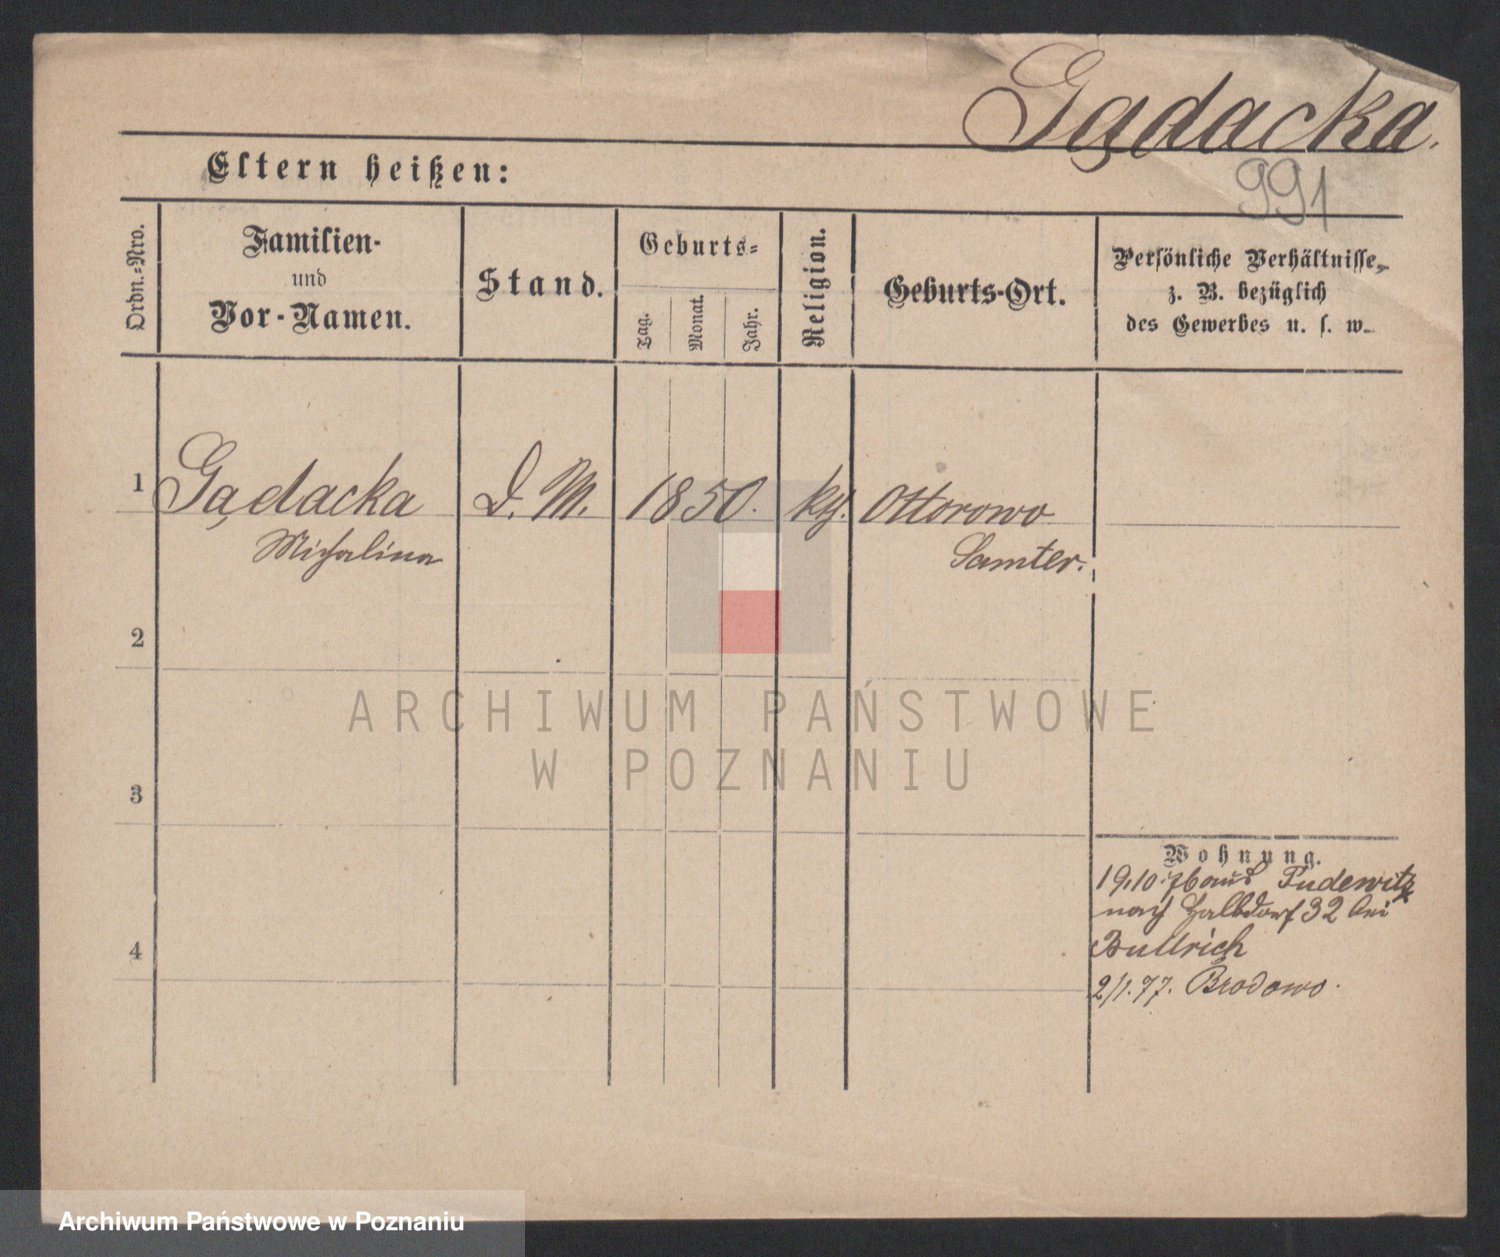 Gądacka.
991
Eltern heißen:
Ordn.=Nro.
Familien-
und
Vor-Namen.
Stand.
Geburts=
Tag.
Monat.
Jahr.
Religion.
Geburts-Ort.
Persönliche Verhältnisse,
z. B. bezüglich
des Gewerbes u. s. w.
1 Gądacka D. M. 1850. kth. Ottorowo
Michalina Samter.
2
ARCHIWUM PAŃSTWOWE
W POZNANIU
3
Wohnung.
19.10.76 aus Pudewitz
nach Halbdorf 32 bei
4 Bullrich
2/1.77. Brodowo.
Archiwum Państwowe w Poznaniu